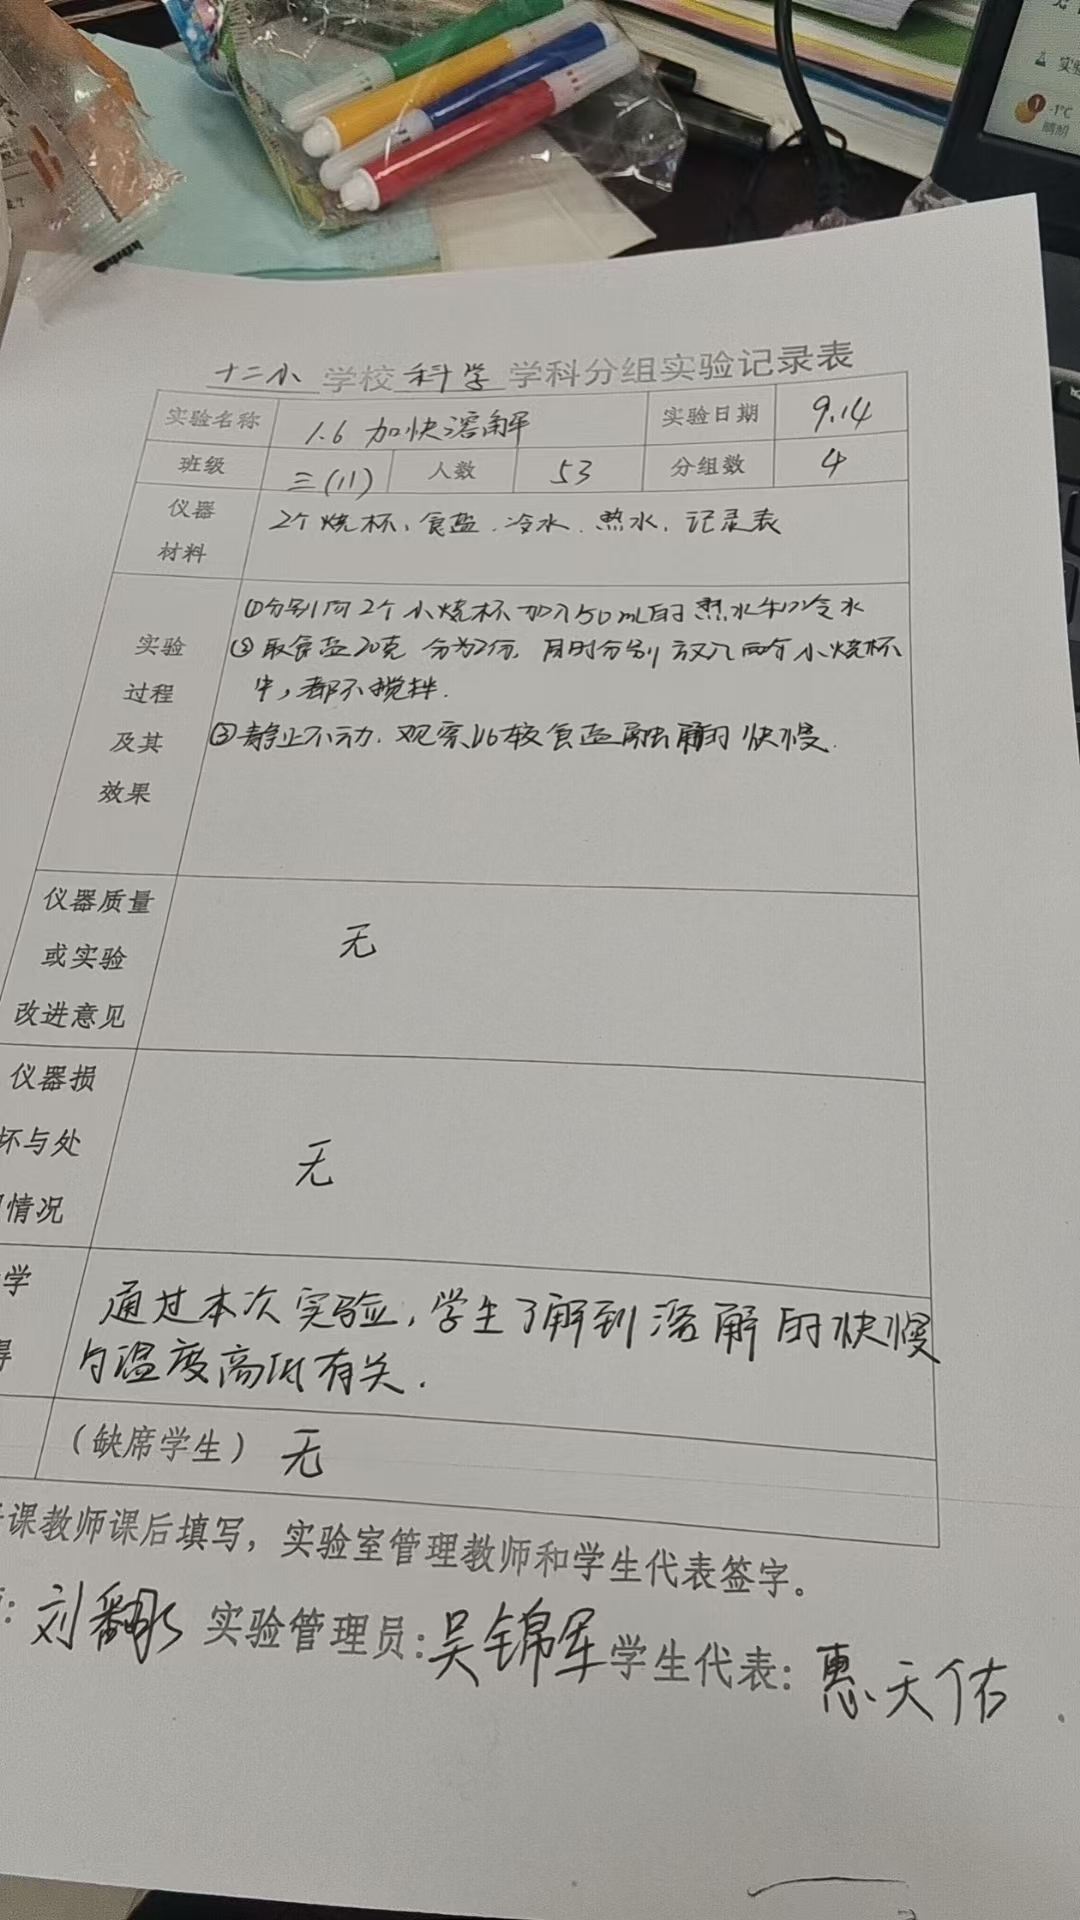 实验
-1°C
晴朗
十二小 学校 科学 学科分组实验记录表
实验名称 1.6 加快溶解 实验日期 9.14
班级 三(11) 人数 53 分组数 4
仪器
材料
2个烧杯、食盐、冷水、热水、记录表
实验
过程
及其
效果
①分别向2个小烧杯加入50mL的热水和冷水
②取食盐20克 分为2份,同时分别放入两个小烧杯
中,都不搅拌.
③静止不动,观察比较食盐融解的快慢.
仪器质量
或实验
改进意见
无
仪器损
坏与处
情况
无
学
得
通过本次实验,学生了解到溶解的快慢
与温度高低有关.
(缺席学生) 无
课教师课后填写,实验室管理教师和学生代表签字。
: 刘 实验管理员: 吴锦军 学生代表: 惠天佑